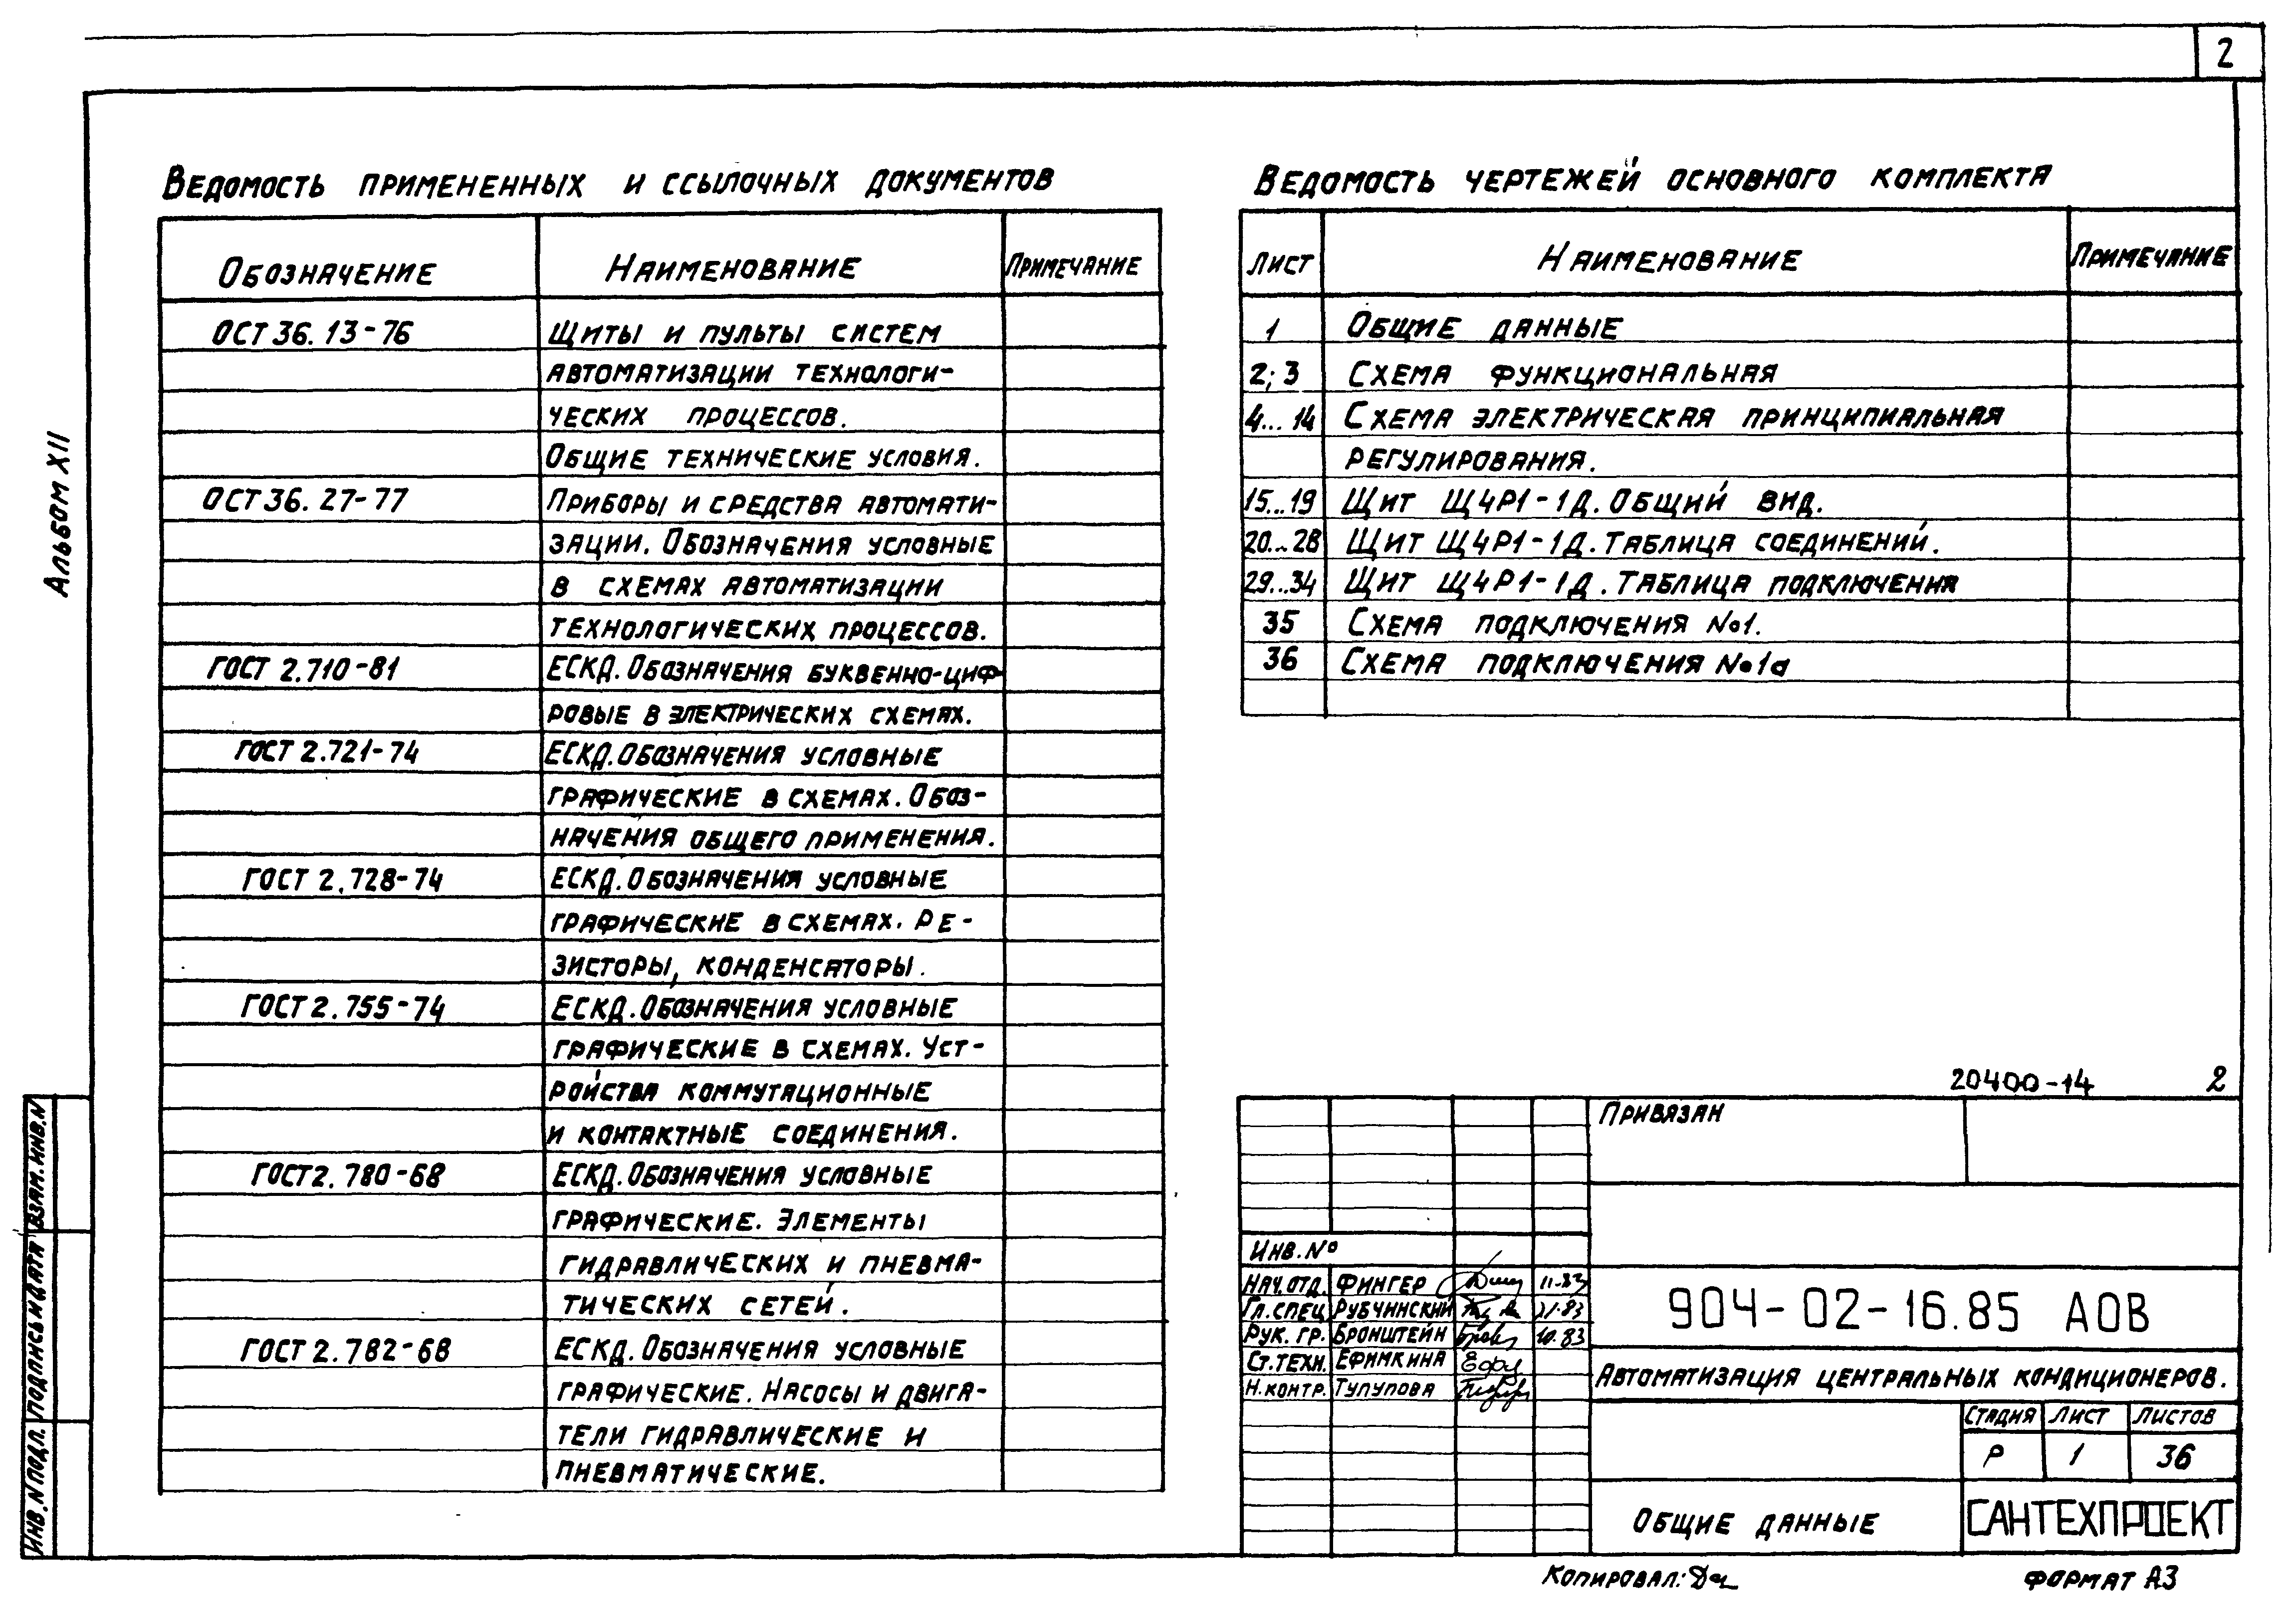 2
Альбом XII
Ведомость примененных и ссылочных документов
Обозначение Наименование Примечание
ОСТ 36.13-76 Щиты и пульты систем
автоматизации технологи-
ческих процессов.
Общие технические условия.
ОСТ 36.27-77 Приборы и средства автомати-
зации. Обозначения условные
в схемах автоматизации
технологических процессов.
ГОСТ 2.710-81 ЕСКД. Обозначения буквенно-циф-
ровые в электрических схемах.
ГОСТ 2.721-74 ЕСКД. Обозначения условные
графические в схемах. Обоз-
начения общего применения.
ГОСТ 2.728-74 ЕСКД. Обозначения условные
графические в схемах. Ре-
зисторы, конденсаторы.
ГОСТ 2.755-74 ЕСКД. Обозначения условные
графические в схемах. Уст-
ройства коммутационные
и контактные соединения.
ГОСТ 2.780-68 ЕСКД. Обозначения условные
графические. Элементы
гидравлических и пневма-
тических сетей.
ГОСТ 2.782-68 ЕСКД. Обозначения условные
графические. Насосы и двига-
тели гидравлические и
пневматические.
Ведомость чертежей основного комплекта
Лист Наименование Примечание
1 Общие данные
2; 3 Схема функциональная
4...14 Схема электрическая принципиальная
регулирования.
15...19 Щит Щ4Р1-1Д. Общий вид.
20...28 Щит Щ4Р1-1Д. Таблица соединений.
29...34 Щит Щ4Р1-1Д. Таблица подключения
35 Схема подключения №1.
36 Схема подключения №1а
20400-14 2
Привязан
Инв. №
Нач. отд. Фингер 11-83
Гл. спец. Рубчинский 11.83
Рук. гр. Бронштейн 10.83
Ст. техн. Ефимкина
Н. контр. Тулупова
904-02-16.85 АОВ
Автоматизация центральных кондиционеров.
Стадия Лист Листов
Р 1 36
Общие данные
САНТЕХПРОЕКТ
Копировал:
Формат А3
Взам. инв. N
Подпись и дата
Инв. N подл.